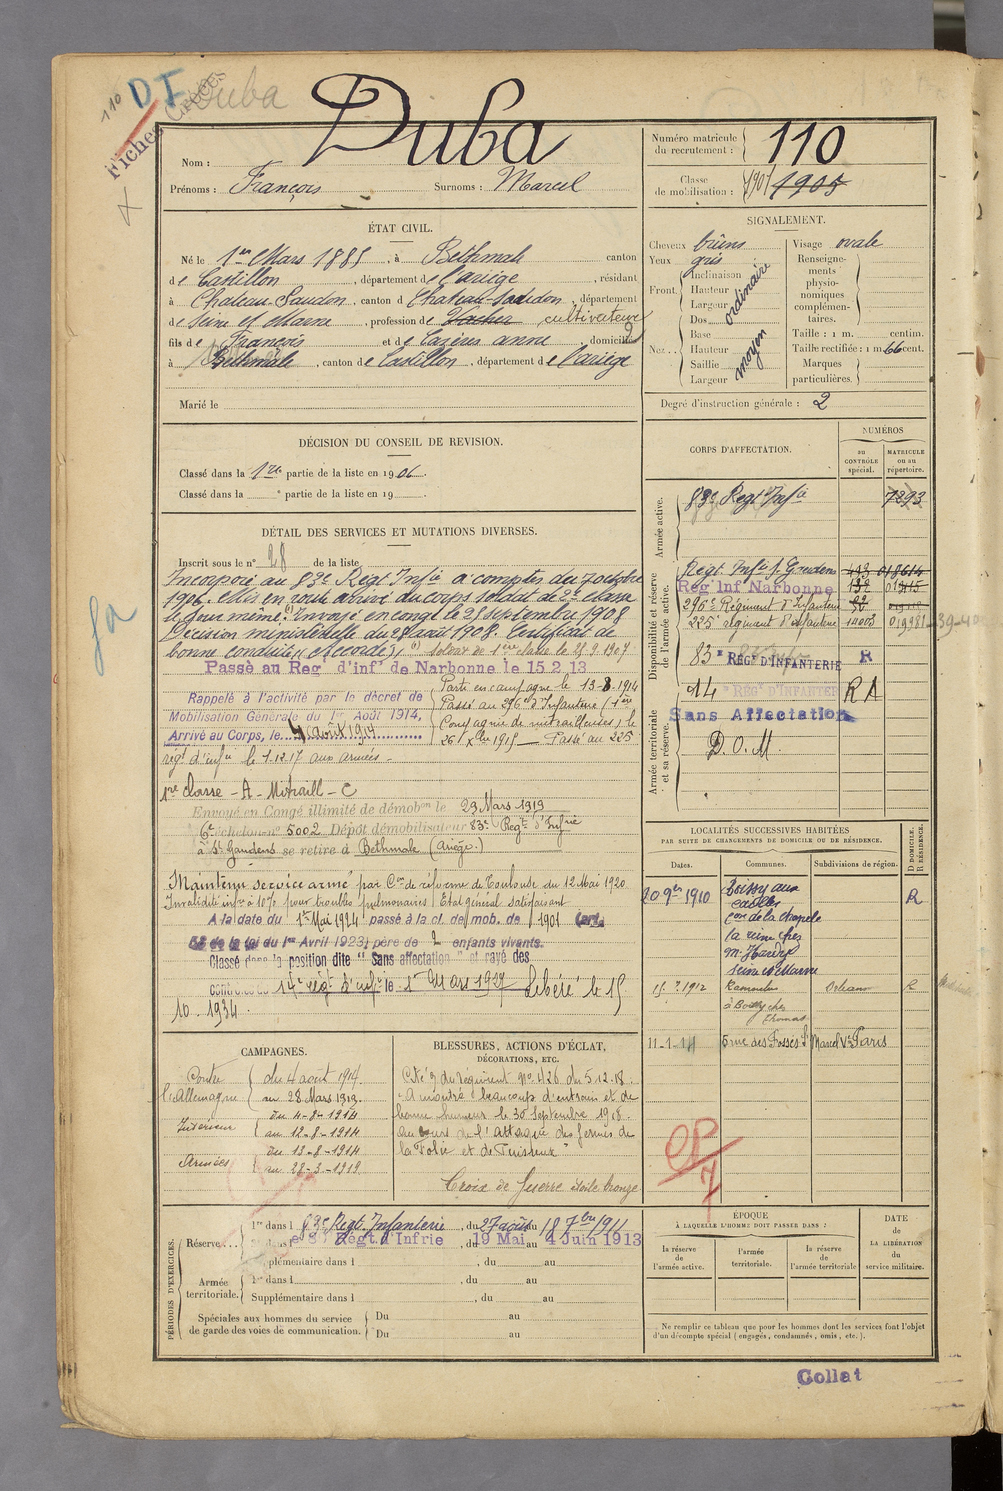 110
DI
Duba
Fiches Créées
Duba
Nom :
Prénoms : François Surnoms : Marcel
Numéro matricule du recrutement : 110
Classe de mobilisation : 1901 1905
ÉTAT CIVIL.
Né le 1er Mars 1885, à Bethmale canton
de Castillon, département de l'ariège, résidant
à Chateau-Landon, canton d Chateau-Landon, département
de Seine et Marne, profession de Vacher cultivateur
fils de François et de Cazeres anne domiciliés
à Bethmale, canton de Castillon, département de l'ariège
Marié le
SIGNALEMENT.
Cheveux bruns
Yeux gris
Front. Inclinaison
Hauteur
Largeur
ordinaire
Nez. Dos
Base
Hauteur
Saillie
Largeur
moyen
Visage ovale
Renseignements physionomiques complémentaires.
Taille : 1 m. centim.
Taille rectifiée : 1 m. 66 cent.
Marques particulières.
Degré d'instruction générale : 2
DÉCISION DU CONSEIL DE REVISION.
Classé dans la 1re partie de la liste en 1906.
Classé dans la partie de la liste en 19
CORPS D'AFFECTATION.
NUMÉROS
au CONTRÔLE spécial.
MATRICULE ou au répertoire.
Armée active.
83e Regt Infie 7293
Disponibilité et réserve de l'armée active.
Regt Infie St Gaudens 493 018614
Reg Inf Narbonne 132
296e Régiment d'Infanterie
225e régiment d'Infanterie 14003 019981
83e RÉGT D'INFANTERIE R
14 RÉGT D'INFANTERIE RA
Armée territoriale et sa réserve.
Sans Affectation
D. O. M.
DÉTAIL DES SERVICES ET MUTATIONS DIVERSES.
Inscrit sous le n° 28 de la liste
Incorporé au 83e Régt Infie à compter du 7 octobre
1906. Mis en route arrivé au corps soldat de 2e classe
le jour même. (1) Envoyé en congé le 28 septembre 1908
Décision ministérielle du 28 août 1908. Certificat de
bonne conduite "Accordé" (1) soldat de 1ère classe le 21.9.1907
Passé au Reg' d'inf' de Narbonne le 15.2.13
Rappelé à l'activité par le décret de
Mobilisation Générale du 1er Août 1914,
Arrivé au Corps, le 4 août 1914
Parti en campagne le 13-8-1914
Passé au 296e d'Infanterie (1ère
Compagnie de mitrailleuses) le
26 Xbre 1915 — Passé au 225
régt d'infie le 1.12.17 aux armées -
1re Classe - A - Mitraill - C
Envoyé en Congé illimité de démobon le 29 Mars 1919
6e échelon no 5002 Dépôt démobilisateur 83e Regt d'Infrie
à St Gaudens se retire à Bethmale (Ariège)
Maintenu service armé par Con de réforme de Toulouse du 12 Mai 1920
Invalidité infre à 10% pour troubles pulmonaires. Etat général satisfaisant
A la date du 1er Mai 1924 passé à la cl. de mob. de 1901 (art.
58 de la loi du 1er Avril 1923) père de 2 enfants vivants.
Classé dans la position dite "Sans affectation" et rayé des
contrôles du 14e régt d'infie le 1er Mars 1927 Libéré le 15
10. 1934
LOCALITÉS SUCCESSIVES HABITÉES
PAR SUITE DE CHANGEMENTS DE DOMICILE OU DE RÉSIDENCE.
Dates. Communes. Subdivisions de région. D DOMICILE. R RÉSIDENCE.
20 9bre 1910 Boissy aux R
cailles
con de la chapelle
la reine chez
Mr Hardy
Seine et Marne
Orléans R
à Boissy chez
Thomas
11-1-14 5 rue des Fossés St Marcel Ve Paris
CAMPAGNES.
Contre l'Allemagne du 4 août 1914
au 28 Mars 1919.
Intérieur du 4-8-1914
au 12-8-1914
Armées du 13-8-1914
au 28-3-1919
BLESSURES, ACTIONS D'ÉCLAT,
DÉCORATIONS, ETC.
Cité O. du régiment No 426 du 5.12.18.
"A montré beaucoup d'entrain et de
bonne humeur le 30 Septembre 1918.
au cours de l'attaque des fermes de
la Folie et de Puisieux"
Croix de Guerre étoile bronze
PÉRIODES D'EXERCICES.
Réserve... 1re dans l 83e Regt. Infanterie, du 27 août au 18 7bre 1911
2e dans le 83 Régt. d'Infrie, du 19 Mai au 4 Juin 1913
Supplémentaire dans l , du au
Armée territoriale. 1re dans l , du au
Supplémentaire dans l , du au
Spéciales aux hommes du service de garde des voies de communication. Du au
Du au
ÉPOQUE
À LAQUELLE L'HOMME DOIT PASSER DANS :
la réserve de l'armée active.
l'armée territoriale.
la réserve de l'armée territoriale
DATE de LA LIBÉRATION du service militaire.
Ne remplir ce tableau que pour les hommes dont les services font l'objet
d'un décompte spécial (engagés, condamnés, omis, etc.).
Collat